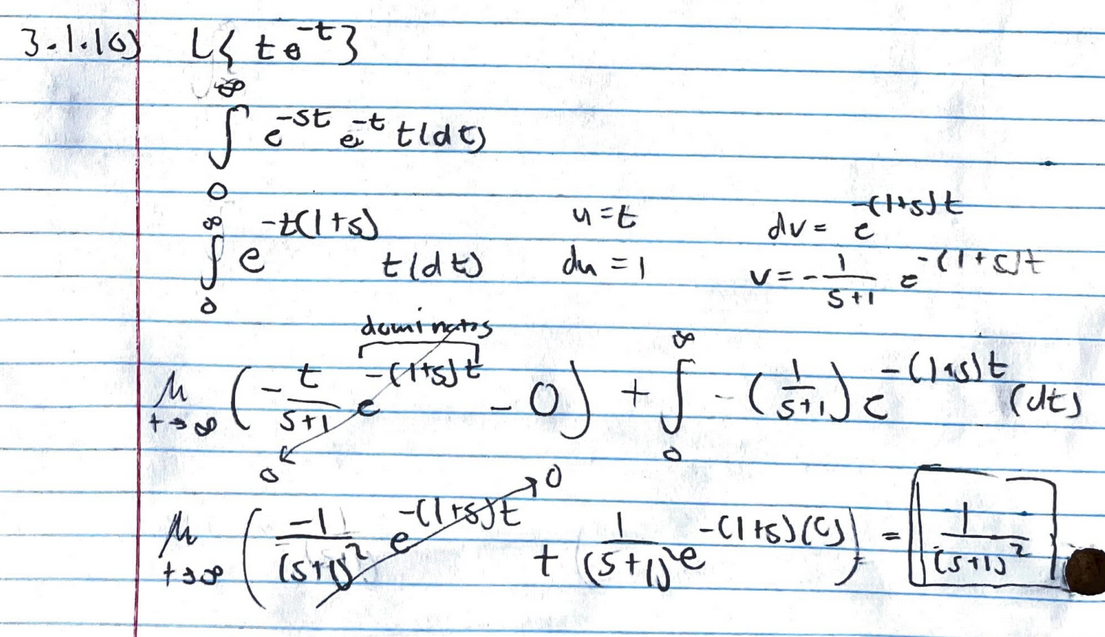 3.1.10) L{ te^{-t} }
∫_0^∞ e^{-st} e^{-t} t(dt)
∫_0^∞ e^{-t(1+s)} t(dt) u=t dv= e^{-(1+s)t}
du=1 v=-\frac{1}{s+1} e^{-(1+s)t}
dominates
lim_{t→∞} (-\frac{t}{s+1} e^{-(1+s)t} - 0) + ∫_0^∞ -(\frac{1}{s+1}) e^{-(1+s)t} (dt)
0
0
lim_{t→∞} (\frac{-1}{(s+1)^2} e^{-(1+s)t} + \frac{1}{(s+1)^2} e^{-(1+s)(0)}) = \frac{1}{(s+1)^2}